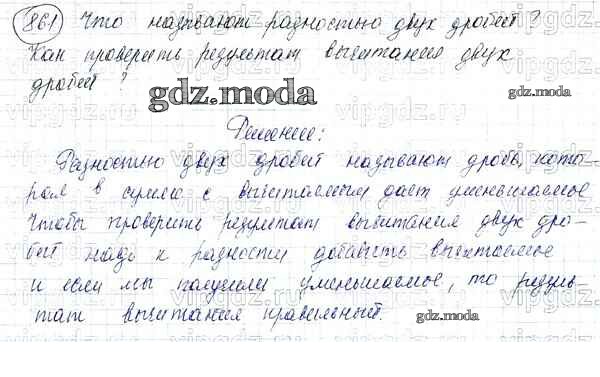 861 Что называют разностью двух дробей?
Как проверить результат вычитания двух
дробей?
gdz.moda
gdz.moda
Решение:
Разностью двух дробей называют дробь, кото-
рая в сумме с вычитаемым дает уменьшаемое
Чтобы проверить результат вычитания двух дро-
бей надо к разности добавить вычитаемое
и если мы получили уменьшаемое, то резуль
тат вычитания правильный.
gdz.moda